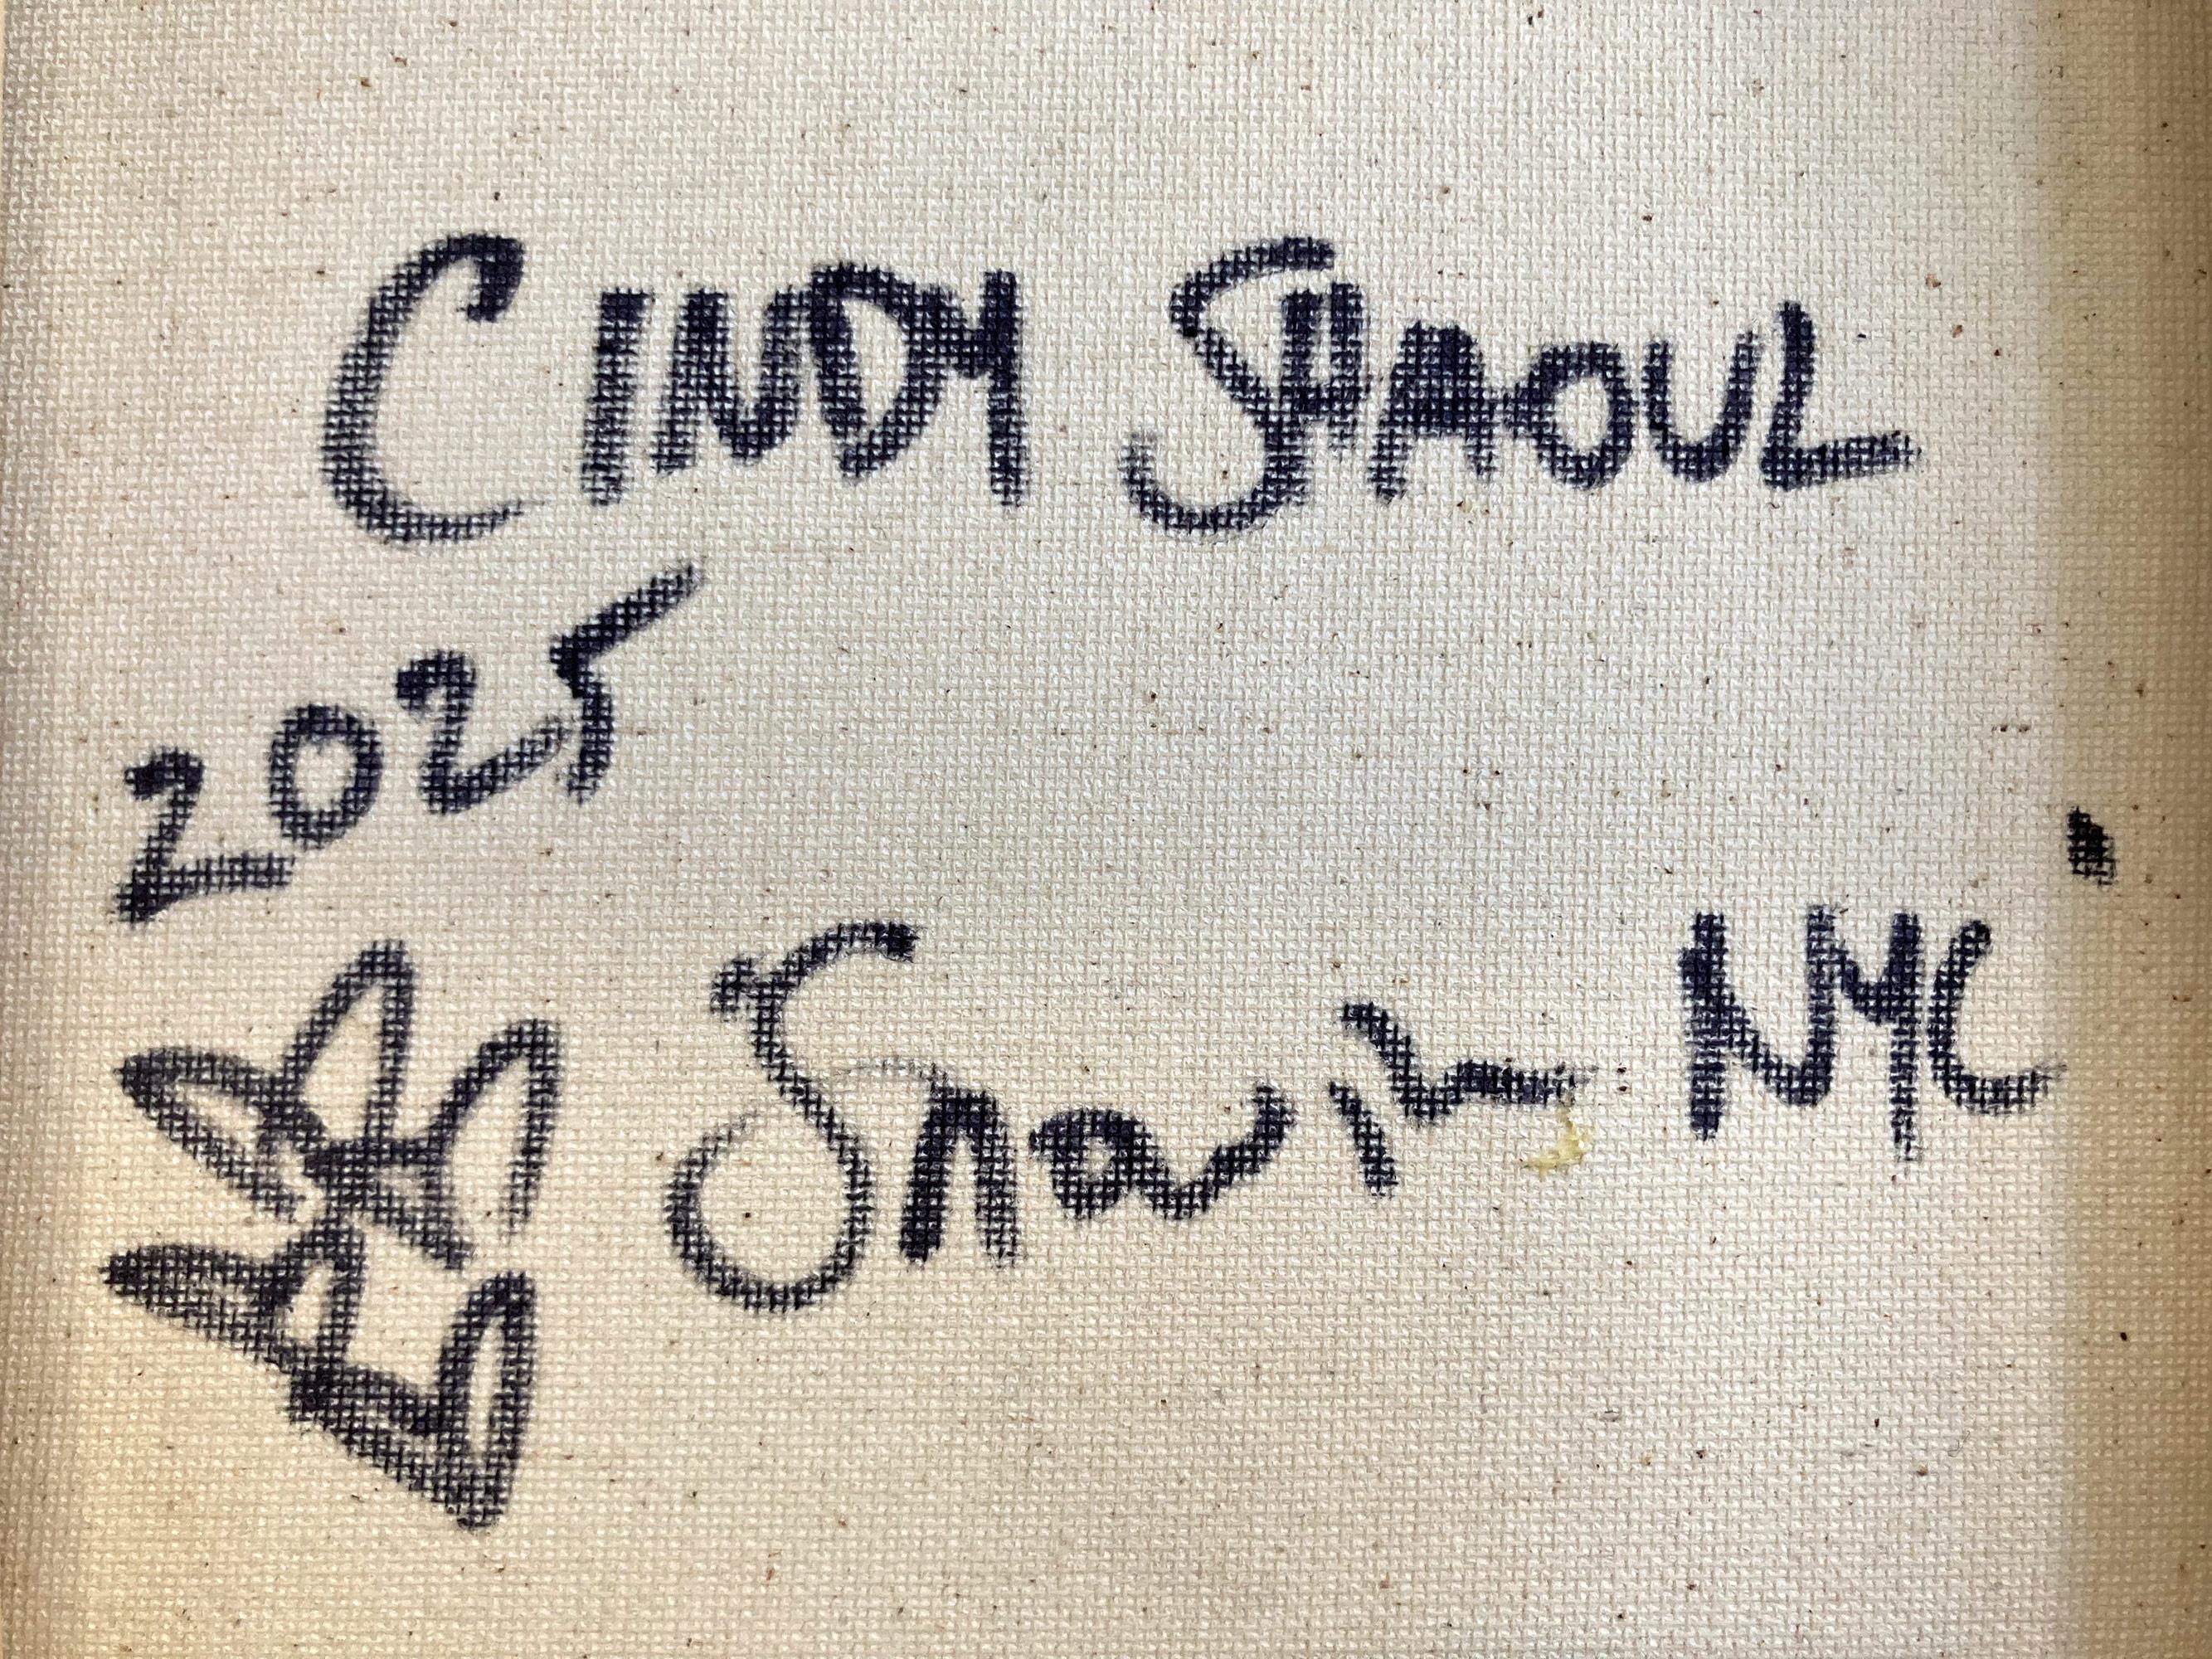 CINDY SHAOUL
2025
NYC